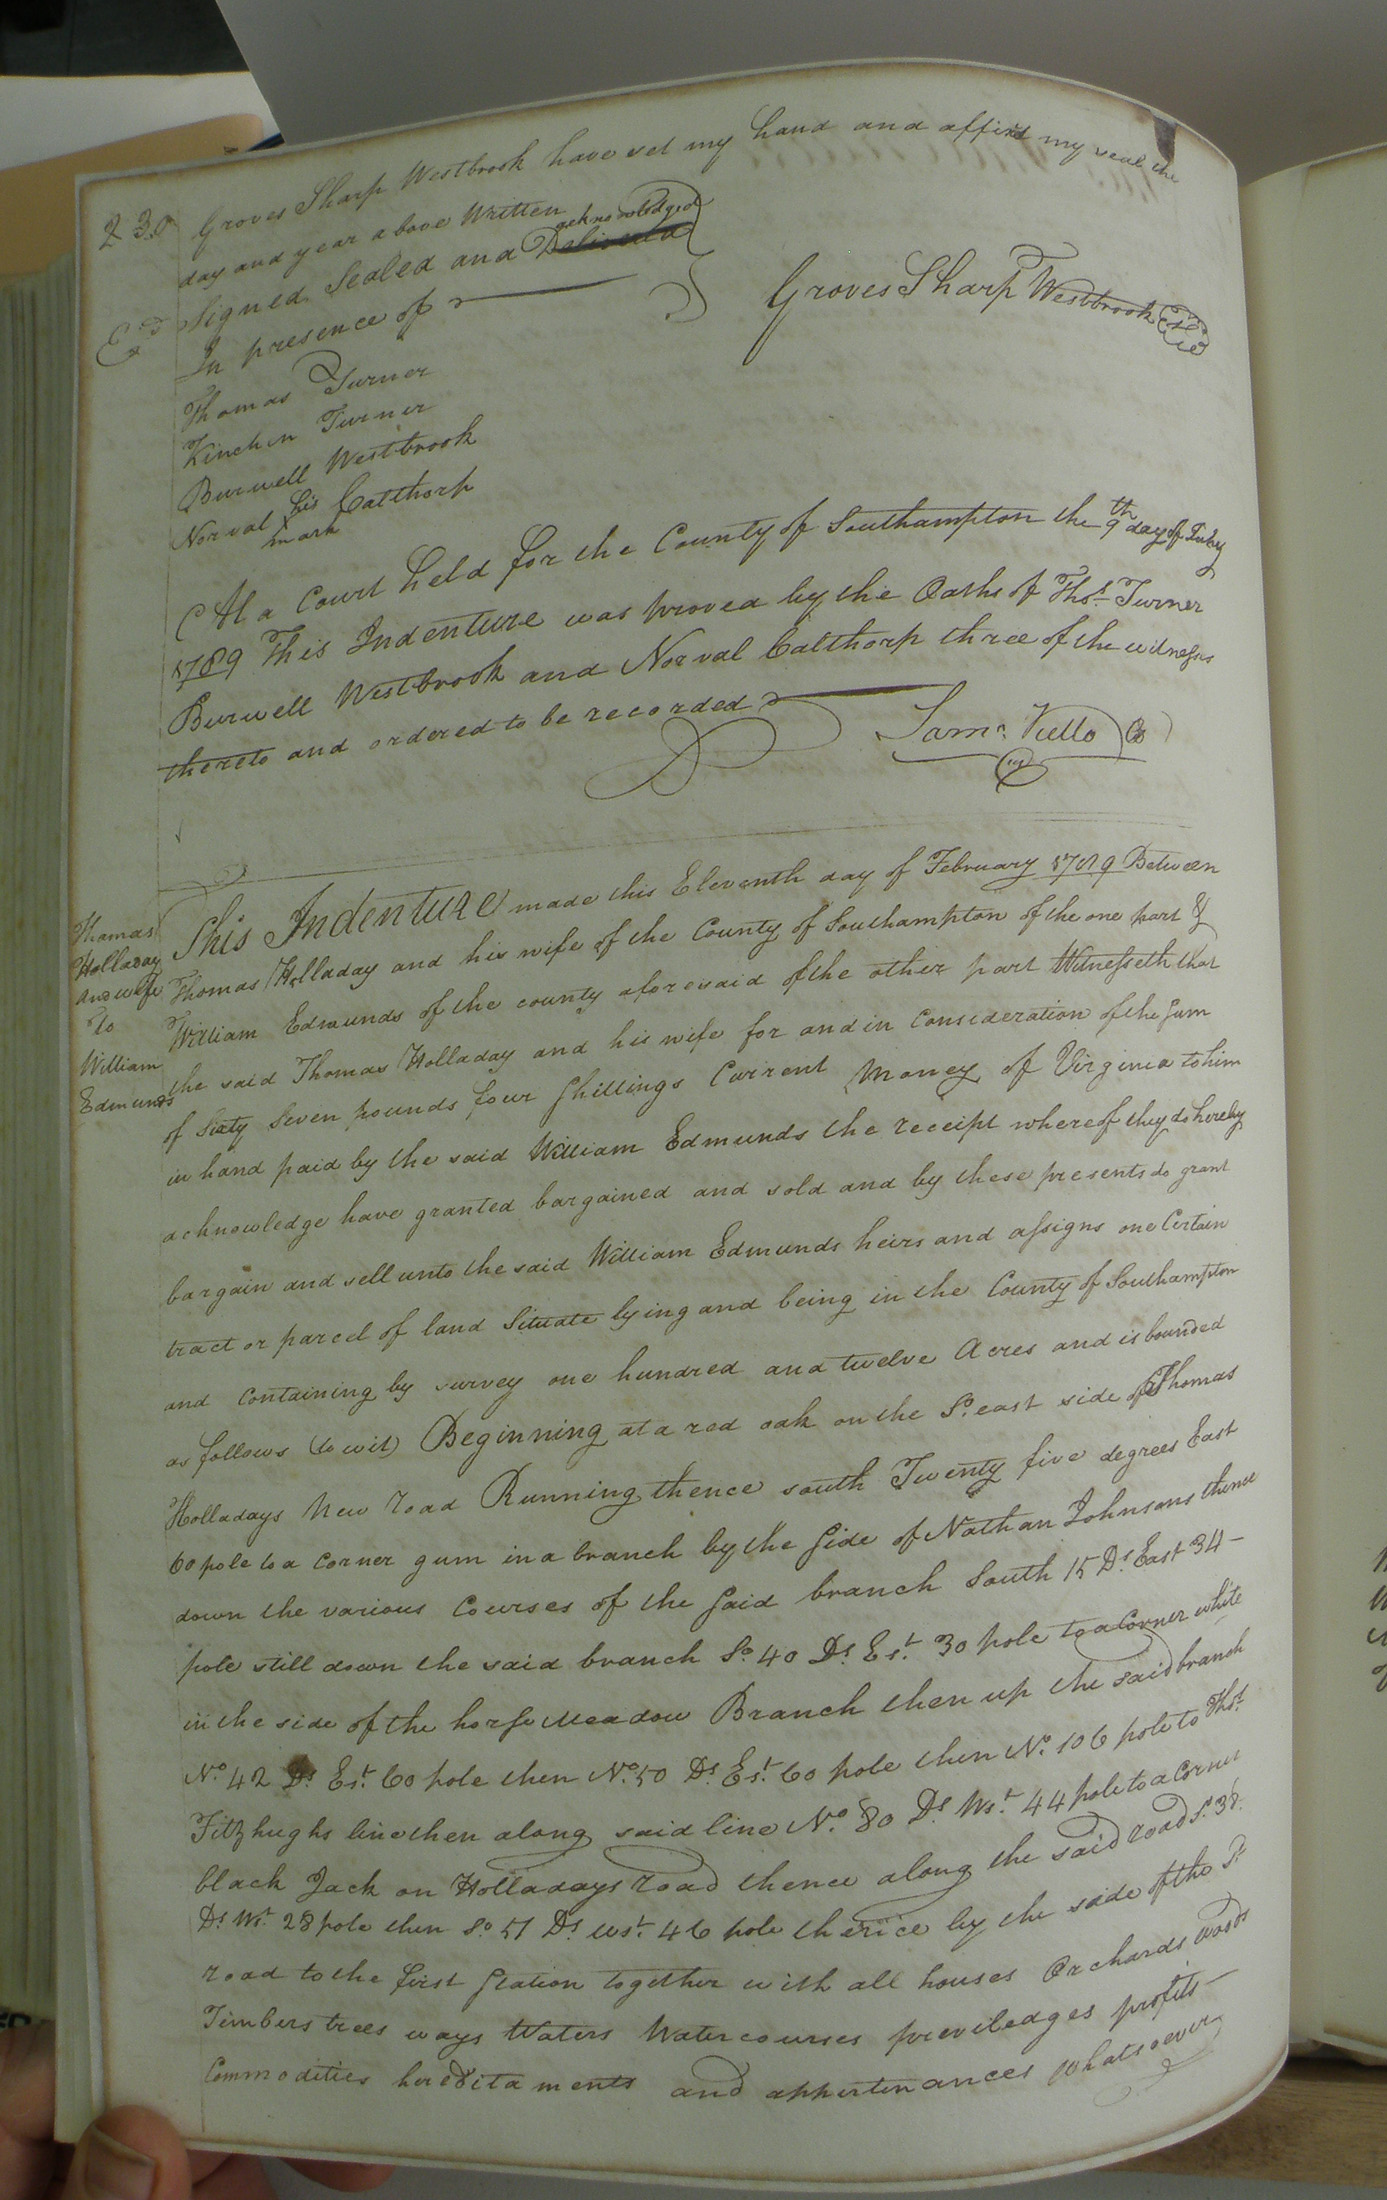 230
Groves Sharp Westbrook have set my hand and affixd my seal the
day and year above Written
acknowledged
Signed Sealed and Delivered
Exd
In presence of
Groves Sharp Westbrook
Thomas Turner
Kinchin Turner
Burwell Westbrook
Norval his Calthorp
mark
At a Court held for the County of Southampton the 9th day of July
1789 This Indenture was proved by the Oaths of Thos. Turner
Burwell Westbrook and Norval Calthorp three of the witnesses
thereto and ordered to be recorded
Saml. Kello CC
Thomas
Holladay
and wife
To
William
Edmunds
This Indenture made this Eleventh day of February 1789 Between
Thomas Holladay and his wife of the County of Southampton of the one part &
William Edmunds of the county aforesaid of the other part Witnesseth that
the said Thomas Holladay and his wife for and in Consideration of the Sum
of Sixty Seven pounds four Shillings Current Money of Virginia to him
in hand paid by the said William Edmunds the receipt whereof they do hereby
acknowledge have granted bargained and sold and by these presents do grant
bargain and sell unto the said William Edmunds heirs and assigns one Certain
tract or parcel of land Situate lying and being in the County of Southampton
and Containing by survey one hundred and twelve Acres and is bounded
as follows (to wit) Beginning at a red oak on the So. east side of Thomas
Holladays New road Running thence south Twenty five degrees East
60 pole to a Corner gum in a branch by the Side of Nathan Johnsons thence
down the various Courses of the Said branch South 15 Ds. East 34 -
pole still down the said branch So. 40 Ds. Est. 30 pole to a Corner white
in the side of the horse meadow Branch then up the said branch
No. 42 Ds Est. 60 pole then No. 50 Ds. Est. 60 pole then No. 106 pole to Thos.
Fitzhughs line then along said line No. 80 Ds Wst. 44 pole to a Corner
black Jack on Holladays road thence along the said road S. 38.
Ds. Wst. 28 pole then So. 51 Ds. Wst. 46 pole thence by the side of the Sd.
road to the first Station together with all houses Orchards woods
Timbers trees ways Waters Water courses previledges profits
Commodities hereditaments and appertinances whatsoever